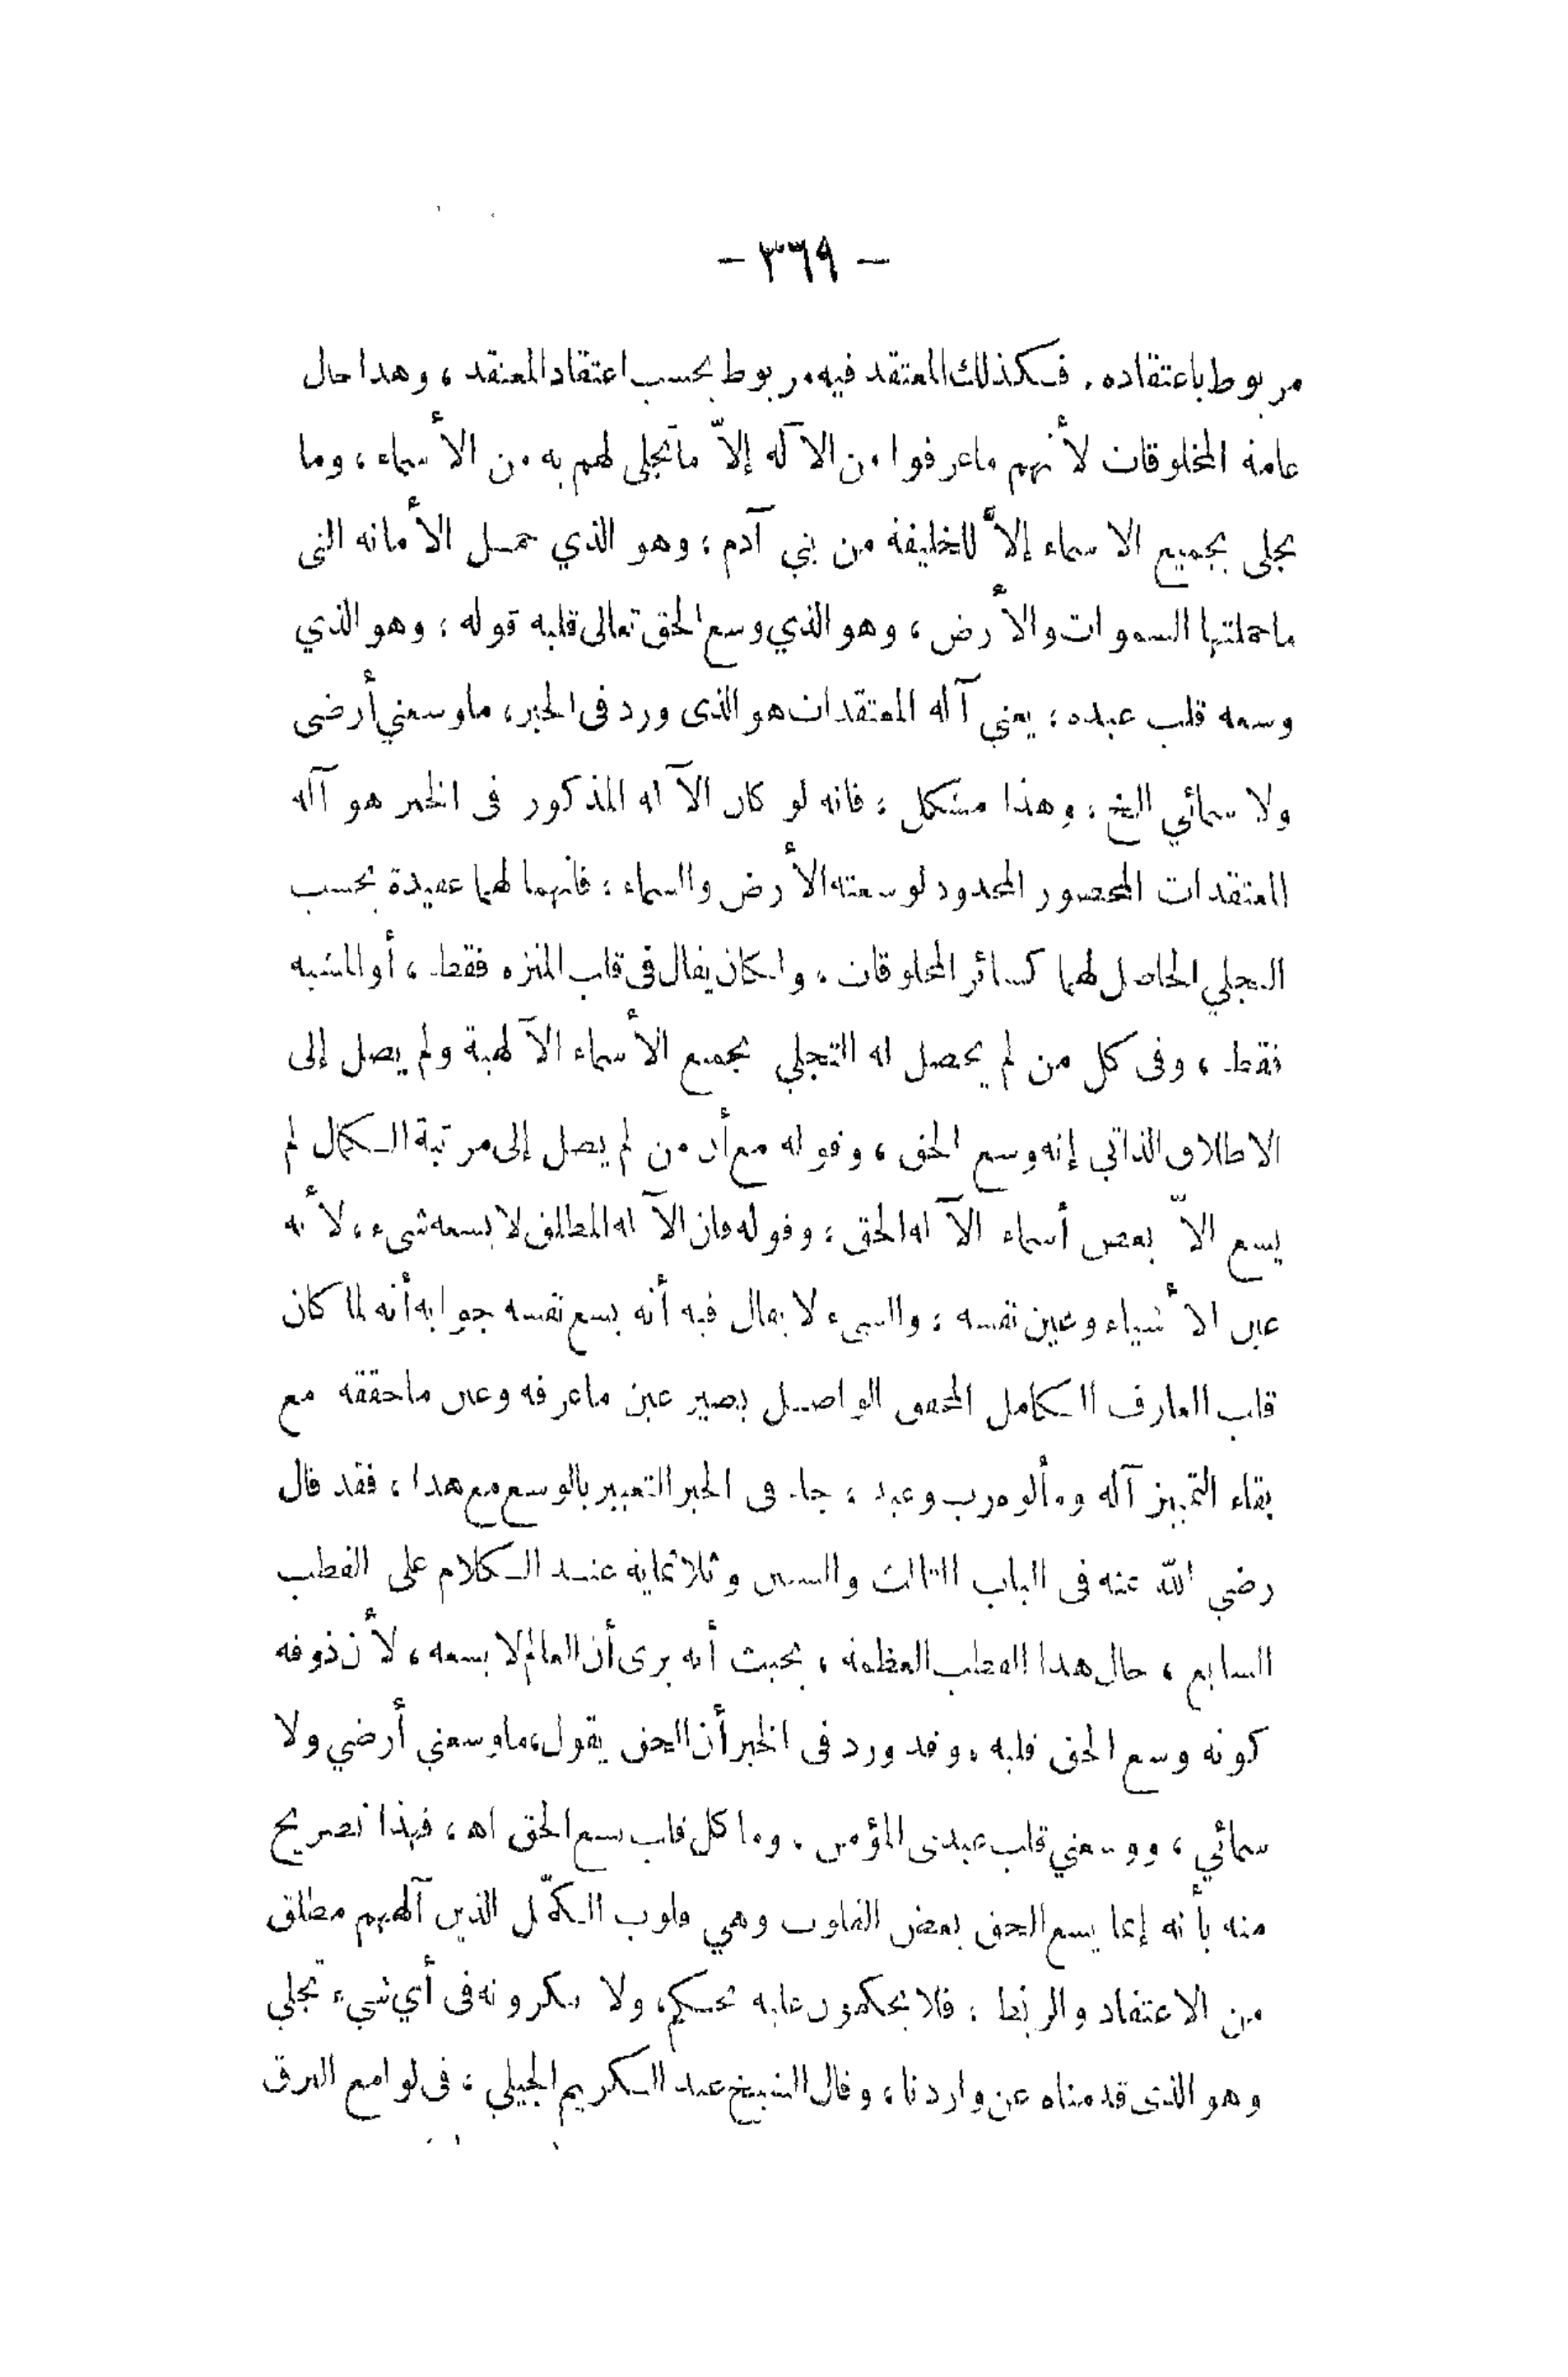 - ٣٦٩ -
مربوط باعتقاده . فكذلك المعتقد فيه مربوط بحسب اعتقاد المعتقد ، وهذا حال
عامة المخلوقات لأنهم ماعرفوا من الآله إلاّ ماتجلى لهم به من الأسماء ، وما
تجلى بجميع الاسماء إلاَّ للخليفة من بني آدم ؛ وهو الذي حمل الأمانه التى
ماحملتها السموات والأرض ، وهو الذي وسع الحق تعالى قلبه قوله ؛ وهو الذي
وسعه قلب عبده ؛ يعني آله المعتقدات هو الذى ورد فى الخبر ، ماوسعني أرضى
ولا سمائي الخ ؛ وهذا مشكل ؛ فانه لو كان الآله المذكور فى الخبر هو آله
المعتقدات المحصور المحدود لوسعته الأرض والسماء ؛ فانهما لهما عقيدة بحسب
التجلي الحاصل لهما كسائر المخلوقات ، ولكان يقال فى قلب المنزه فقط ، أو المشبه
فقط ، وفى كل من لم يحصل له التجلي بجميع الأسماء الآلهية ولم يصل إلى
الاطلاق الذاتي إنه وسع الحق ، وقوله مع أن من لم يصل إلى مرتبة الكمال لم
يسع الاّ بعض أسماء الآله الحق ؛ وقوله فان الآله المطلق لا يسعه شىء ، لأنه
عين الأشياء وعين نفسه ؛ والشىء لا يقال فيه أنه يسع نفسه جوابه أنه لما كان
قلب العارف الكامل المحقق الواصل يصير عين ماعرفه وعين ماحققه مع
بقاء التمييز آله ومألوه رب وعبد ؛ جاء فى الخبر التعبير بالوسع مع هذا ، فقد قال
رضي الله عنه فى الباب الثالث والستين وثلاثماية عند الكلام على القطب
السابع ، حال هذا القطب العظمة ، بحيث أنه يرى أن العالم لا يسعه ، لأن ذوقه
كونه وسع الحق قلبه ، وقد ورد فى الخبر أن الحق يقول ، ماوسعني أرضي ولا
سمائي ، ووسعني قلب عبدى المؤمن . وما كل قلب يسع الحق اه ، فهذا تصريح
منه بأنه إنما يسع الحق بعض القلوب وهي قلوب الكمّل الذين آلههم مطلق
من الاعتقاد والربط ؛ فلا يحكمون عليه بحكم ، ولا ينكرونه فى أي شيء تجلي
وهو الذى قدمناه عن واردنا ، وقال الشيخ عبد الكريم الجيلي ، فى لوامع البرق